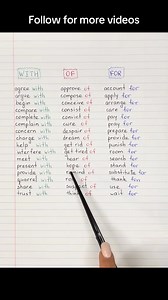 Follow for more videos
WITH OF FOR
agree with approve of account for
argue with compose of apply for
begin with conceive of arrange for
compare with consist of care for
complete with convict of for
complain with cure of pray for
concern with despair of prepare for
charge with dream of provide for
help with get rid of punish for
interfere with get tired of room for
meet with hear of search for
present with hope of stand for
provide with remind of substitute for
quarrel with of thank for
share with suspect of use for
trust with think of wait for